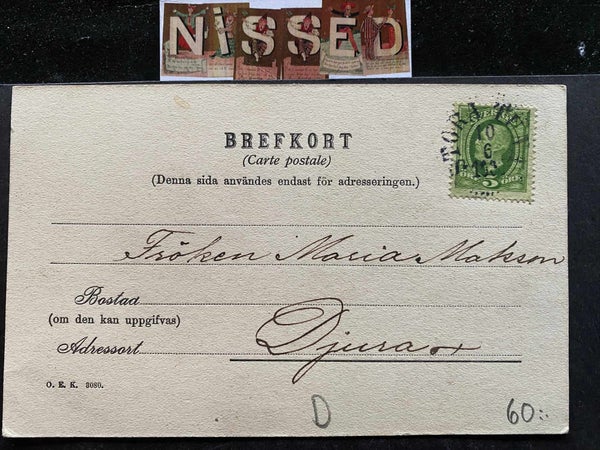 NiSSED
BREFKORT
(Carte postale)
(Denna sida användes endast för adresseringen.)
SVERIGE
5 ÖRE
10
6
Fröken Maria Matsson
Bostad
(om den kan uppgifvas)
Adressort
Djura
O. E. K. 3080.
D
60:-